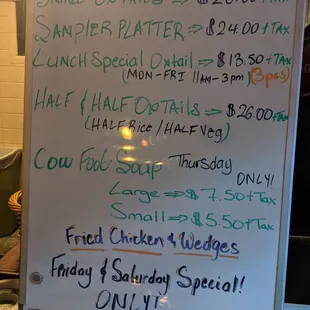 SAMPLER PLATTER ⇒ $24.00 + TAX
LUNCH Special Oxtail ⇒ $13.50 + TAX
(MON-FRI 11AM-3pm) (3pcs)
HALF & HALF OXTAILS ⇒ $26.00 + TAX
(HALF Rice / HALF Veg)
Cow Foot Soup Thursday
ONLY!
Large ⇒ $7.50 + Tax
Small ⇒ $5.50 + Tax
Fried Chicken & Wedges
Friday & Saturday Special!
ONLY!